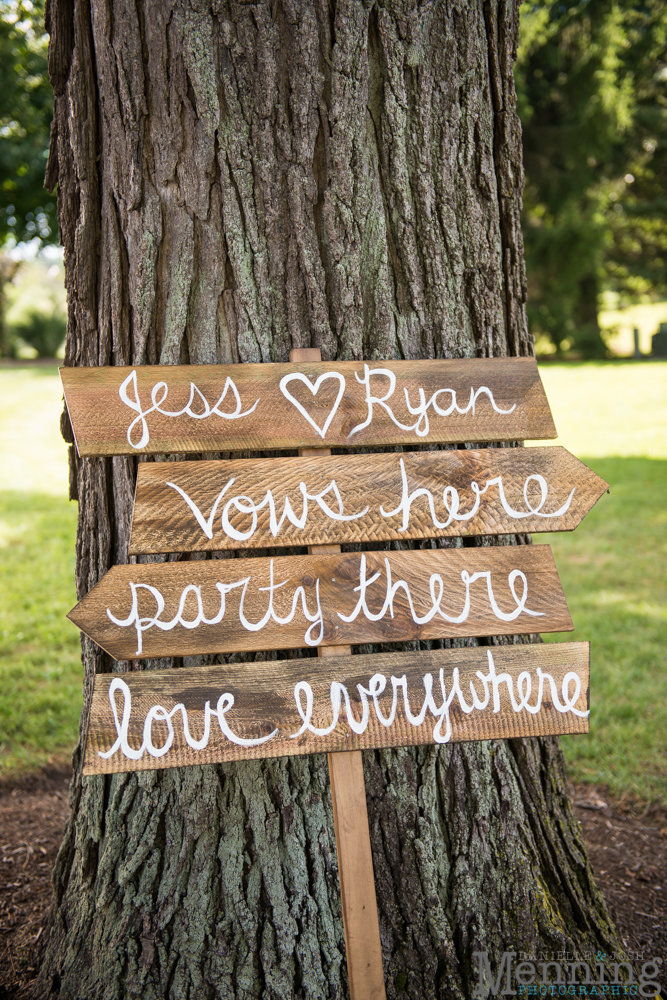 Jess ♡ Ryan
vows here
party there
love everywhere
DANIELLE & JOSH
Menning
PHOTOGRAPHIC